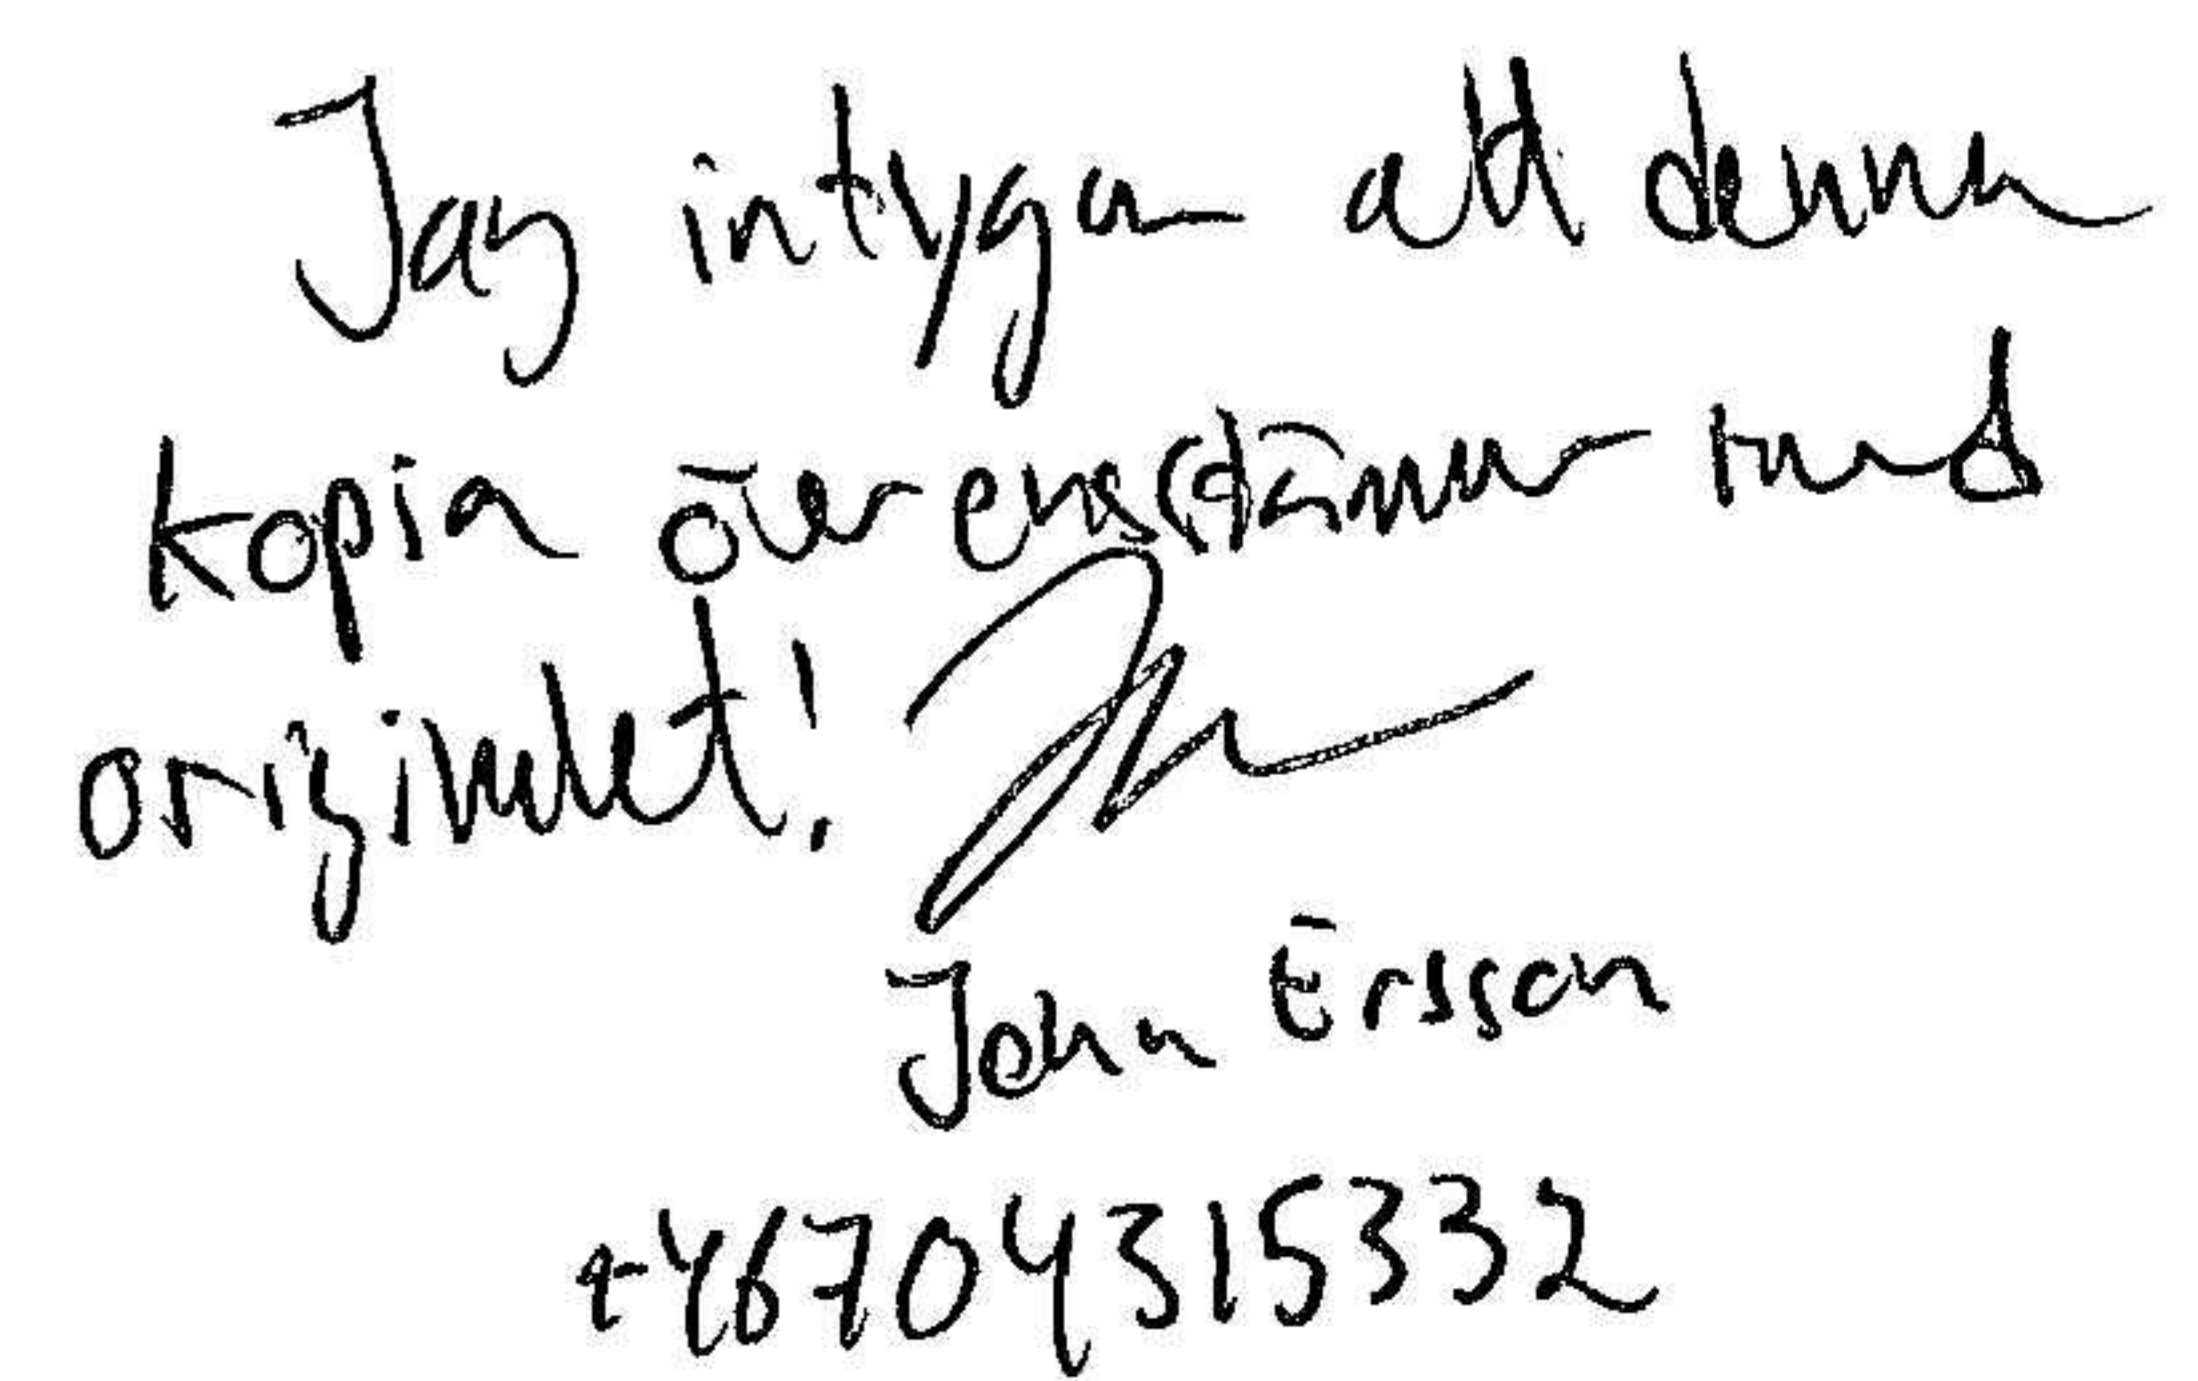 Jag intygar att denna
kopia överensstämmer med
originalet!
John Ersson
+46704315332